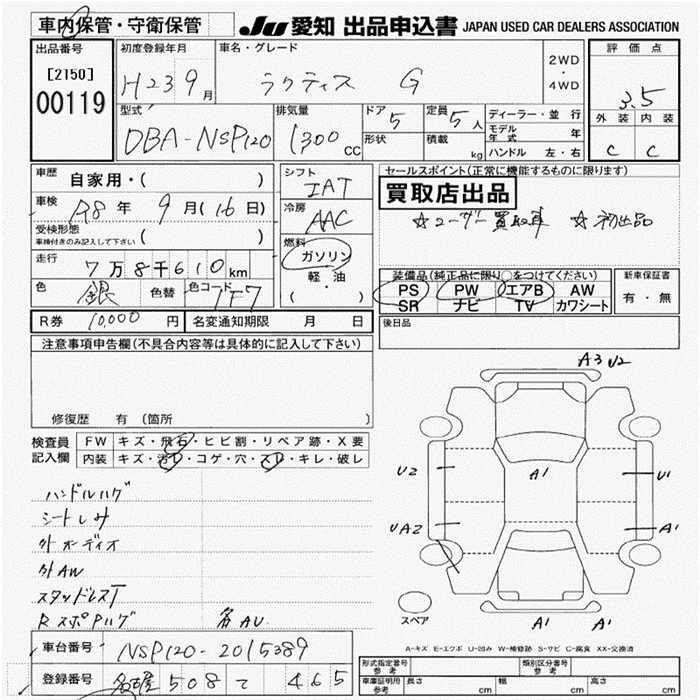 車内保管・守衛保管 JU 愛知 出品申込書 JAPAN USED CAR DEALERS ASSOCIATION
出品番号 初度登録年月 車名・グレード 2WD・4WD 評価点
[2150] H23 9月 ラクティス G 3.5
00119
型式 排気量 ドア 5 定員 5人 ディーラー・並行 外装 内装
DBA-NSP120 1300cc 形状 積載 kg モデル年式 年 C C
ハンドル 左・右
車歴 自家用・( ) シフト IAT セールスポイント(正常に機能するものに限ります)
買取店出品
車検 R8年 9月(16日) 冷房 AAC ☆ユーザー買取車 ☆初出品
受検形態 車検付きのみ記入して下さい ( ) 燃料
走行 7万8千610km ガソリン
軽・油
( )
装備品(純正品に限り○をつけてください) 新車保証書
色 銀 色替 色コード 1F7 PS PW エアB AW 有・無
SR ナビ TV カワシート
R券 10,000円 名変通知期限 月 日 後日品
注意事項申告欄(不具合内容等は具体的に記入して下さい)
A3 U2
修復歴 有 (箇所
検査員記入欄 FW キズ・飛石・ヒビ割・リペア跡・X要
内装 キズ・汚レ・コゲ・穴・スレ・キレ・破レ
U2 A1 U1
ハンドルハゲ
シートしみ
外オーディオ UA2 A1
外AW
スタッドレスT
Rスポハゲ 各AU
スペア A1 A1
車台番号 NSP120-2015389 A-キズ E-エクボ U-凹み W-補修跡 S-サビ C-腐食 XX-交換済
登録番号 名古屋 508 て 465 形式指定番号 参考 類別区分番号 参考
車庫証明用 参考 長さ cm 幅 cm 高さ cm